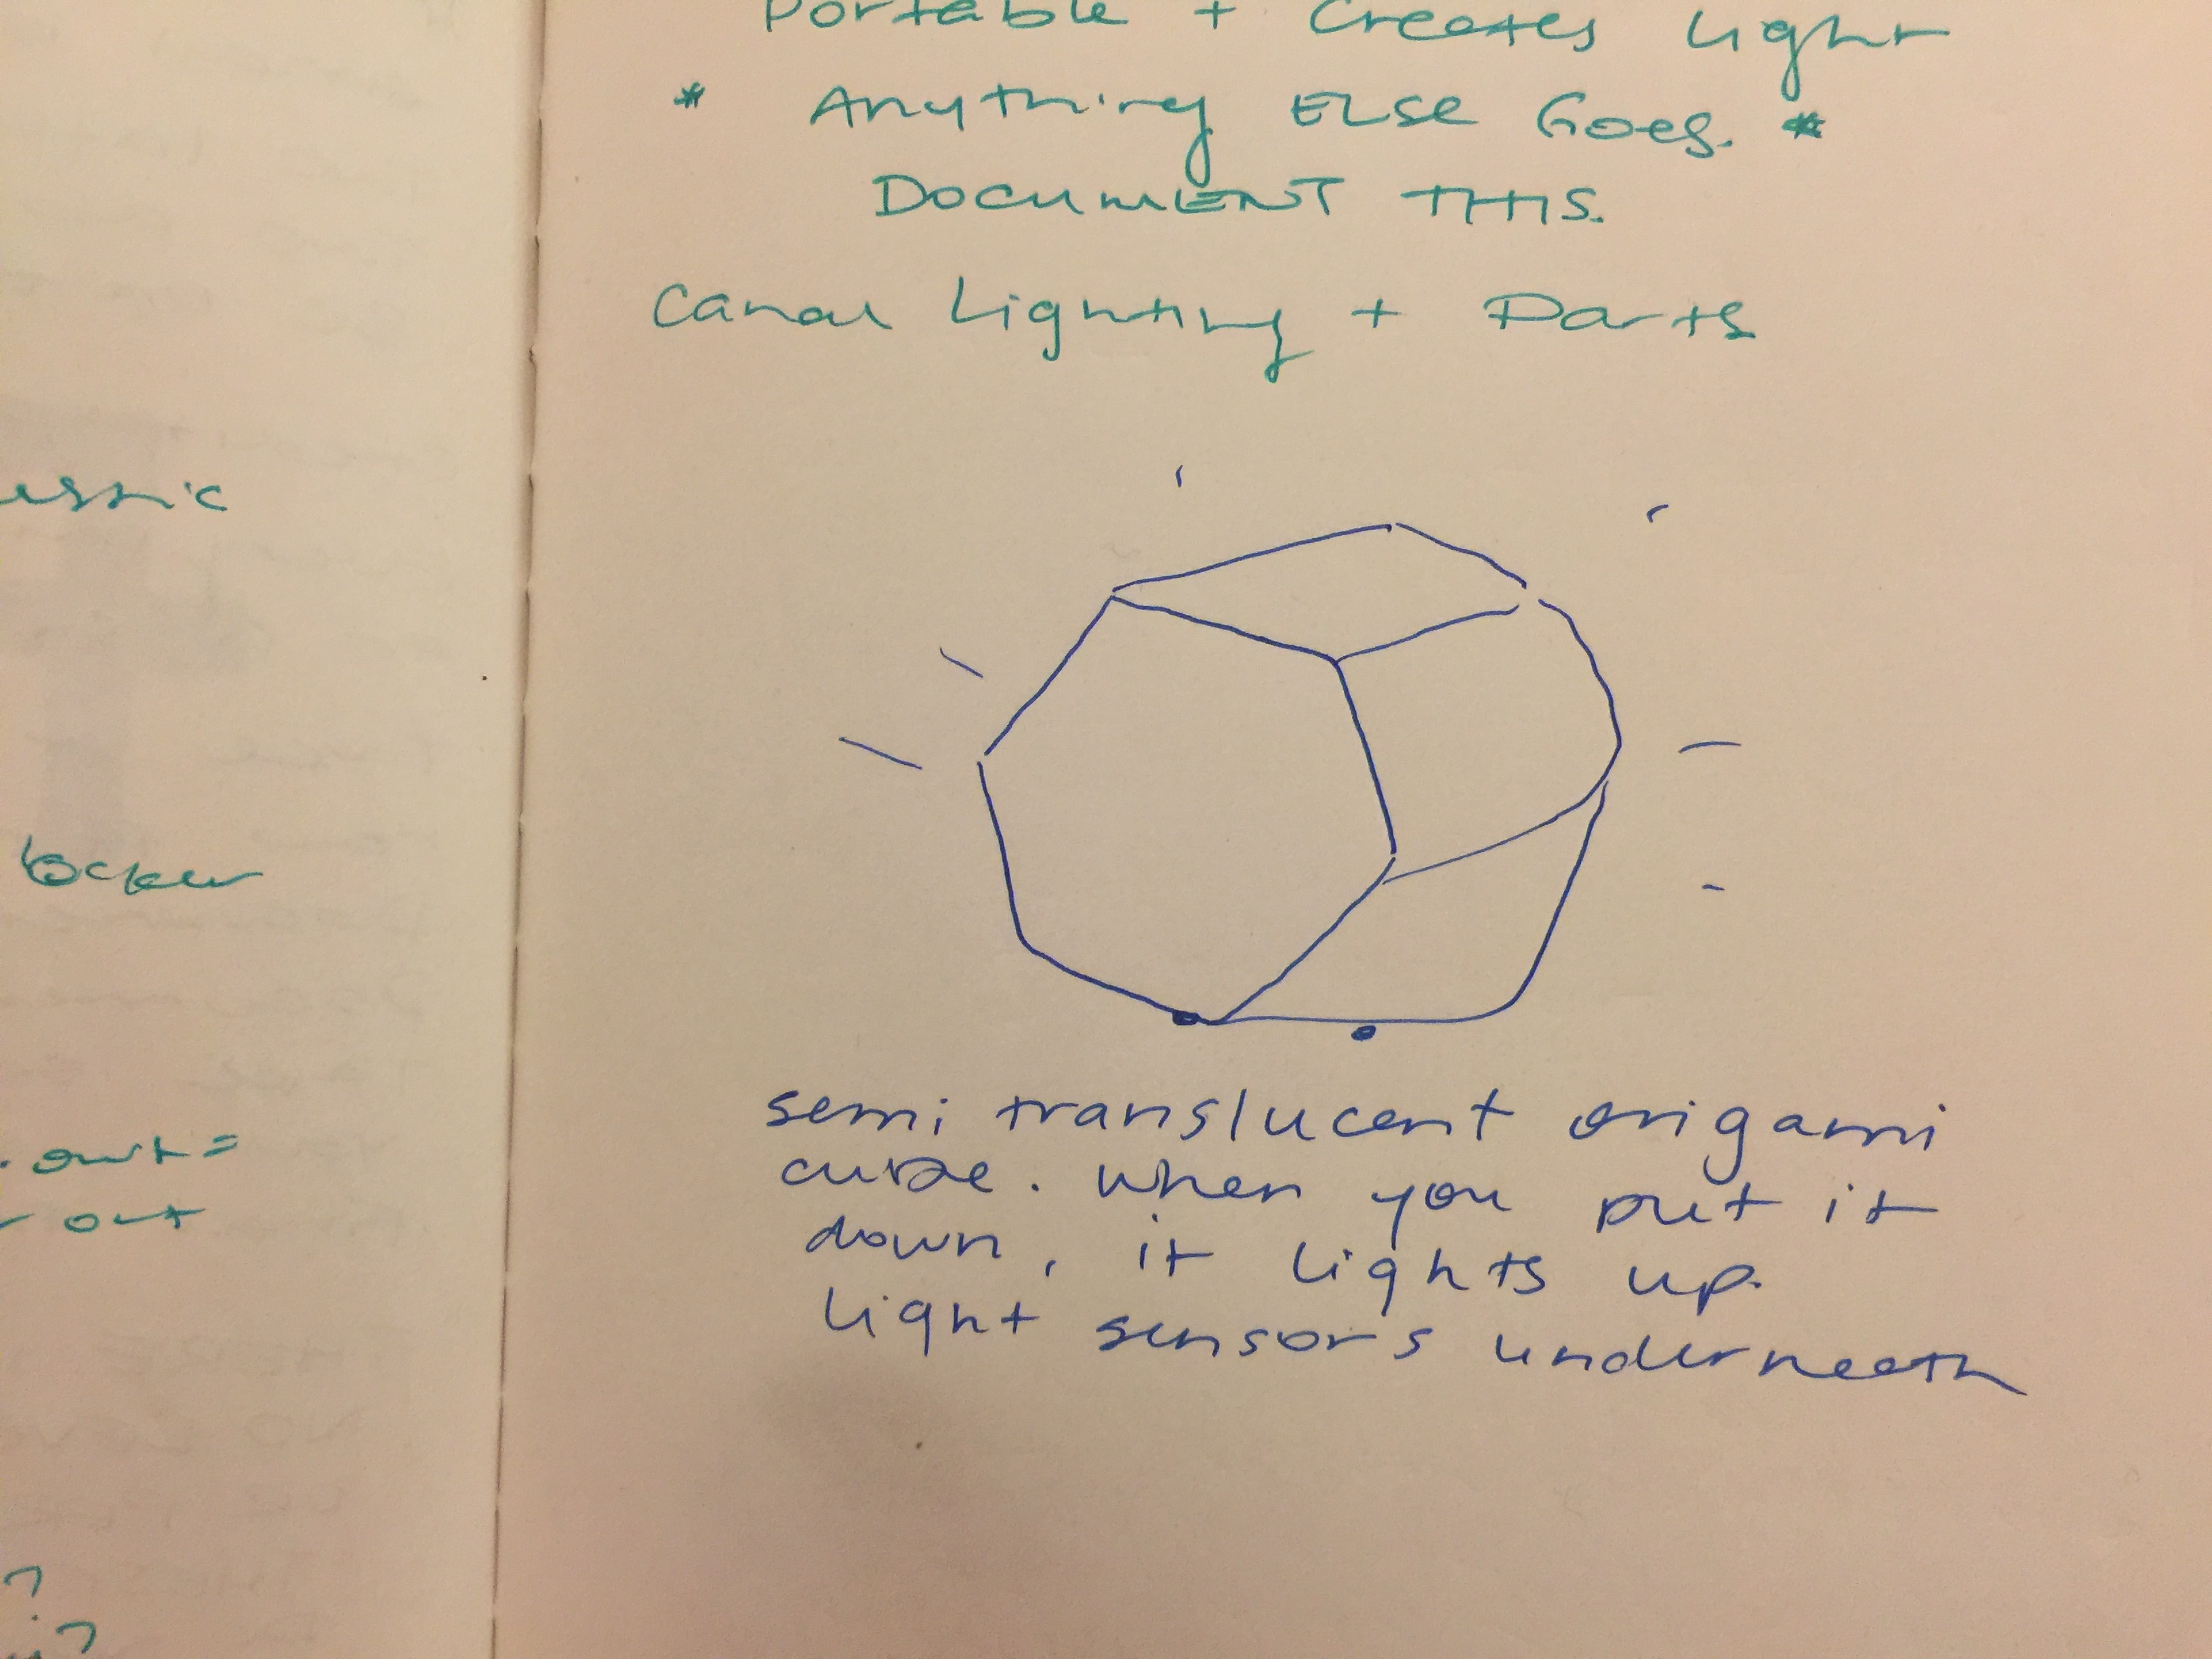 essic
locker
. out =
r out
?
?
Portable + Creates Light
* Anything ELSE Goes. *
DOCUMENT THIS.
Canal Lighting + Parts
semi translucent origami
cube. when you put it
down, it lights up.
light sensors underneath